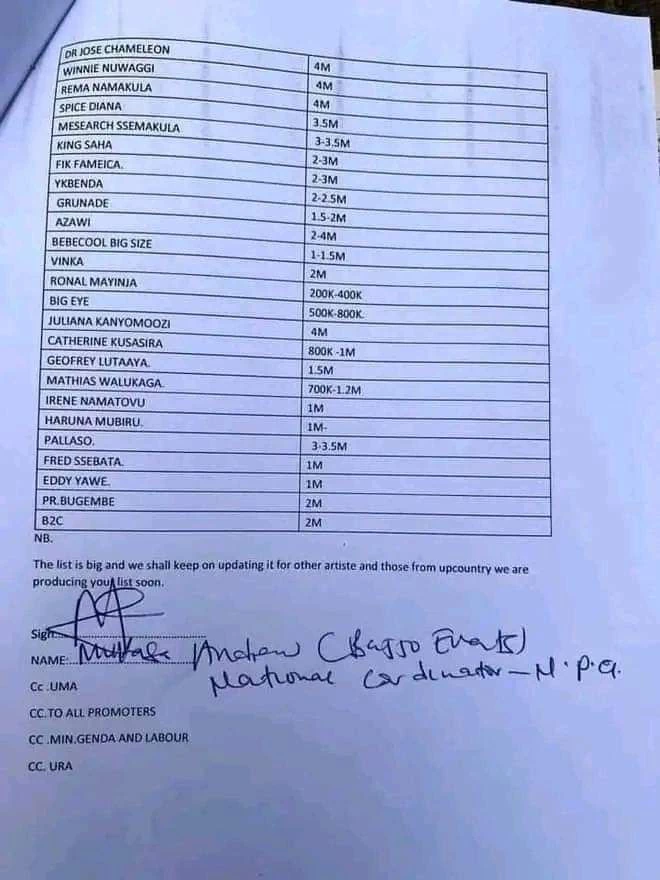 DR JOSE CHAMELEON 4M
WINNIE NUWAGGI 4M
REMA NAMAKULA 4M
SPICE DIANA 3.5M
MESEARCH SSEMAKULA 3-3.5M
KING SAHA 2-3M
FIK FAMEICA. 2-3M
YKBENDA 2-2.5M
GRUNADE 1.5-2M
AZAWI 2-4M
BEBECOOL BIG SIZE 1-1.5M
VINKA 2M
RONAL MAYINJA 200K-400K
BIG EYE 500K-800K.
JULIANA KANYOMOOZI 4M
CATHERINE KUSASIRA 800K -1M
GEOFREY LUTAAYA. 1.5M
MATHIAS WALUKAGA. 700K-1.2M
IRENE NAMATOVU 1M
HARUNA MUBIRU. 1M-
PALLASO. 3-3.5M
FRED SSEBATA. 1M
EDDY YAWE. 1M
PR.BUGEMBE 2M
B2C 2M
NB.
The list is big and we shall keep on updating it for other artiste and those from upcountry we are
producing your list soon.
Sign
NAME: Andrew (Bajjo Events)
National Cordinator - M.P.G.
Cc .UMA
CC.TO ALL PROMOTERS
CC .MIN.GENDA AND LABOUR
CC. URA